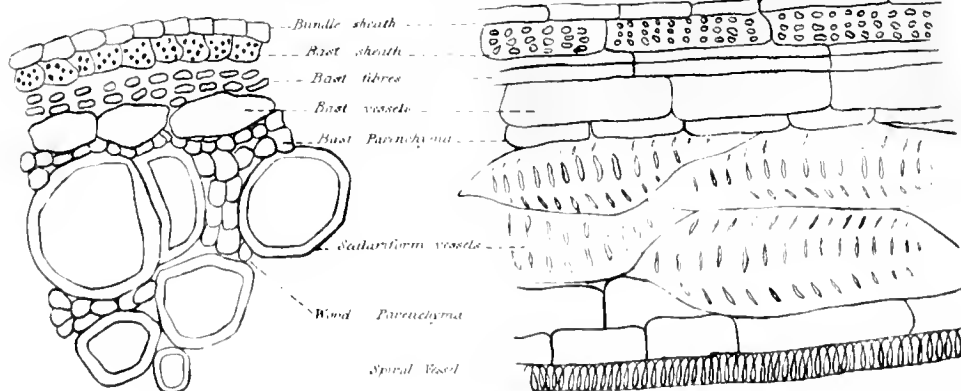 Bundle sheath
Bast sheath
Bast fibres
Bast vessels
Bast Parenchyma
Scalariform vessels
Wood Parenchyma
Spiral Vessel